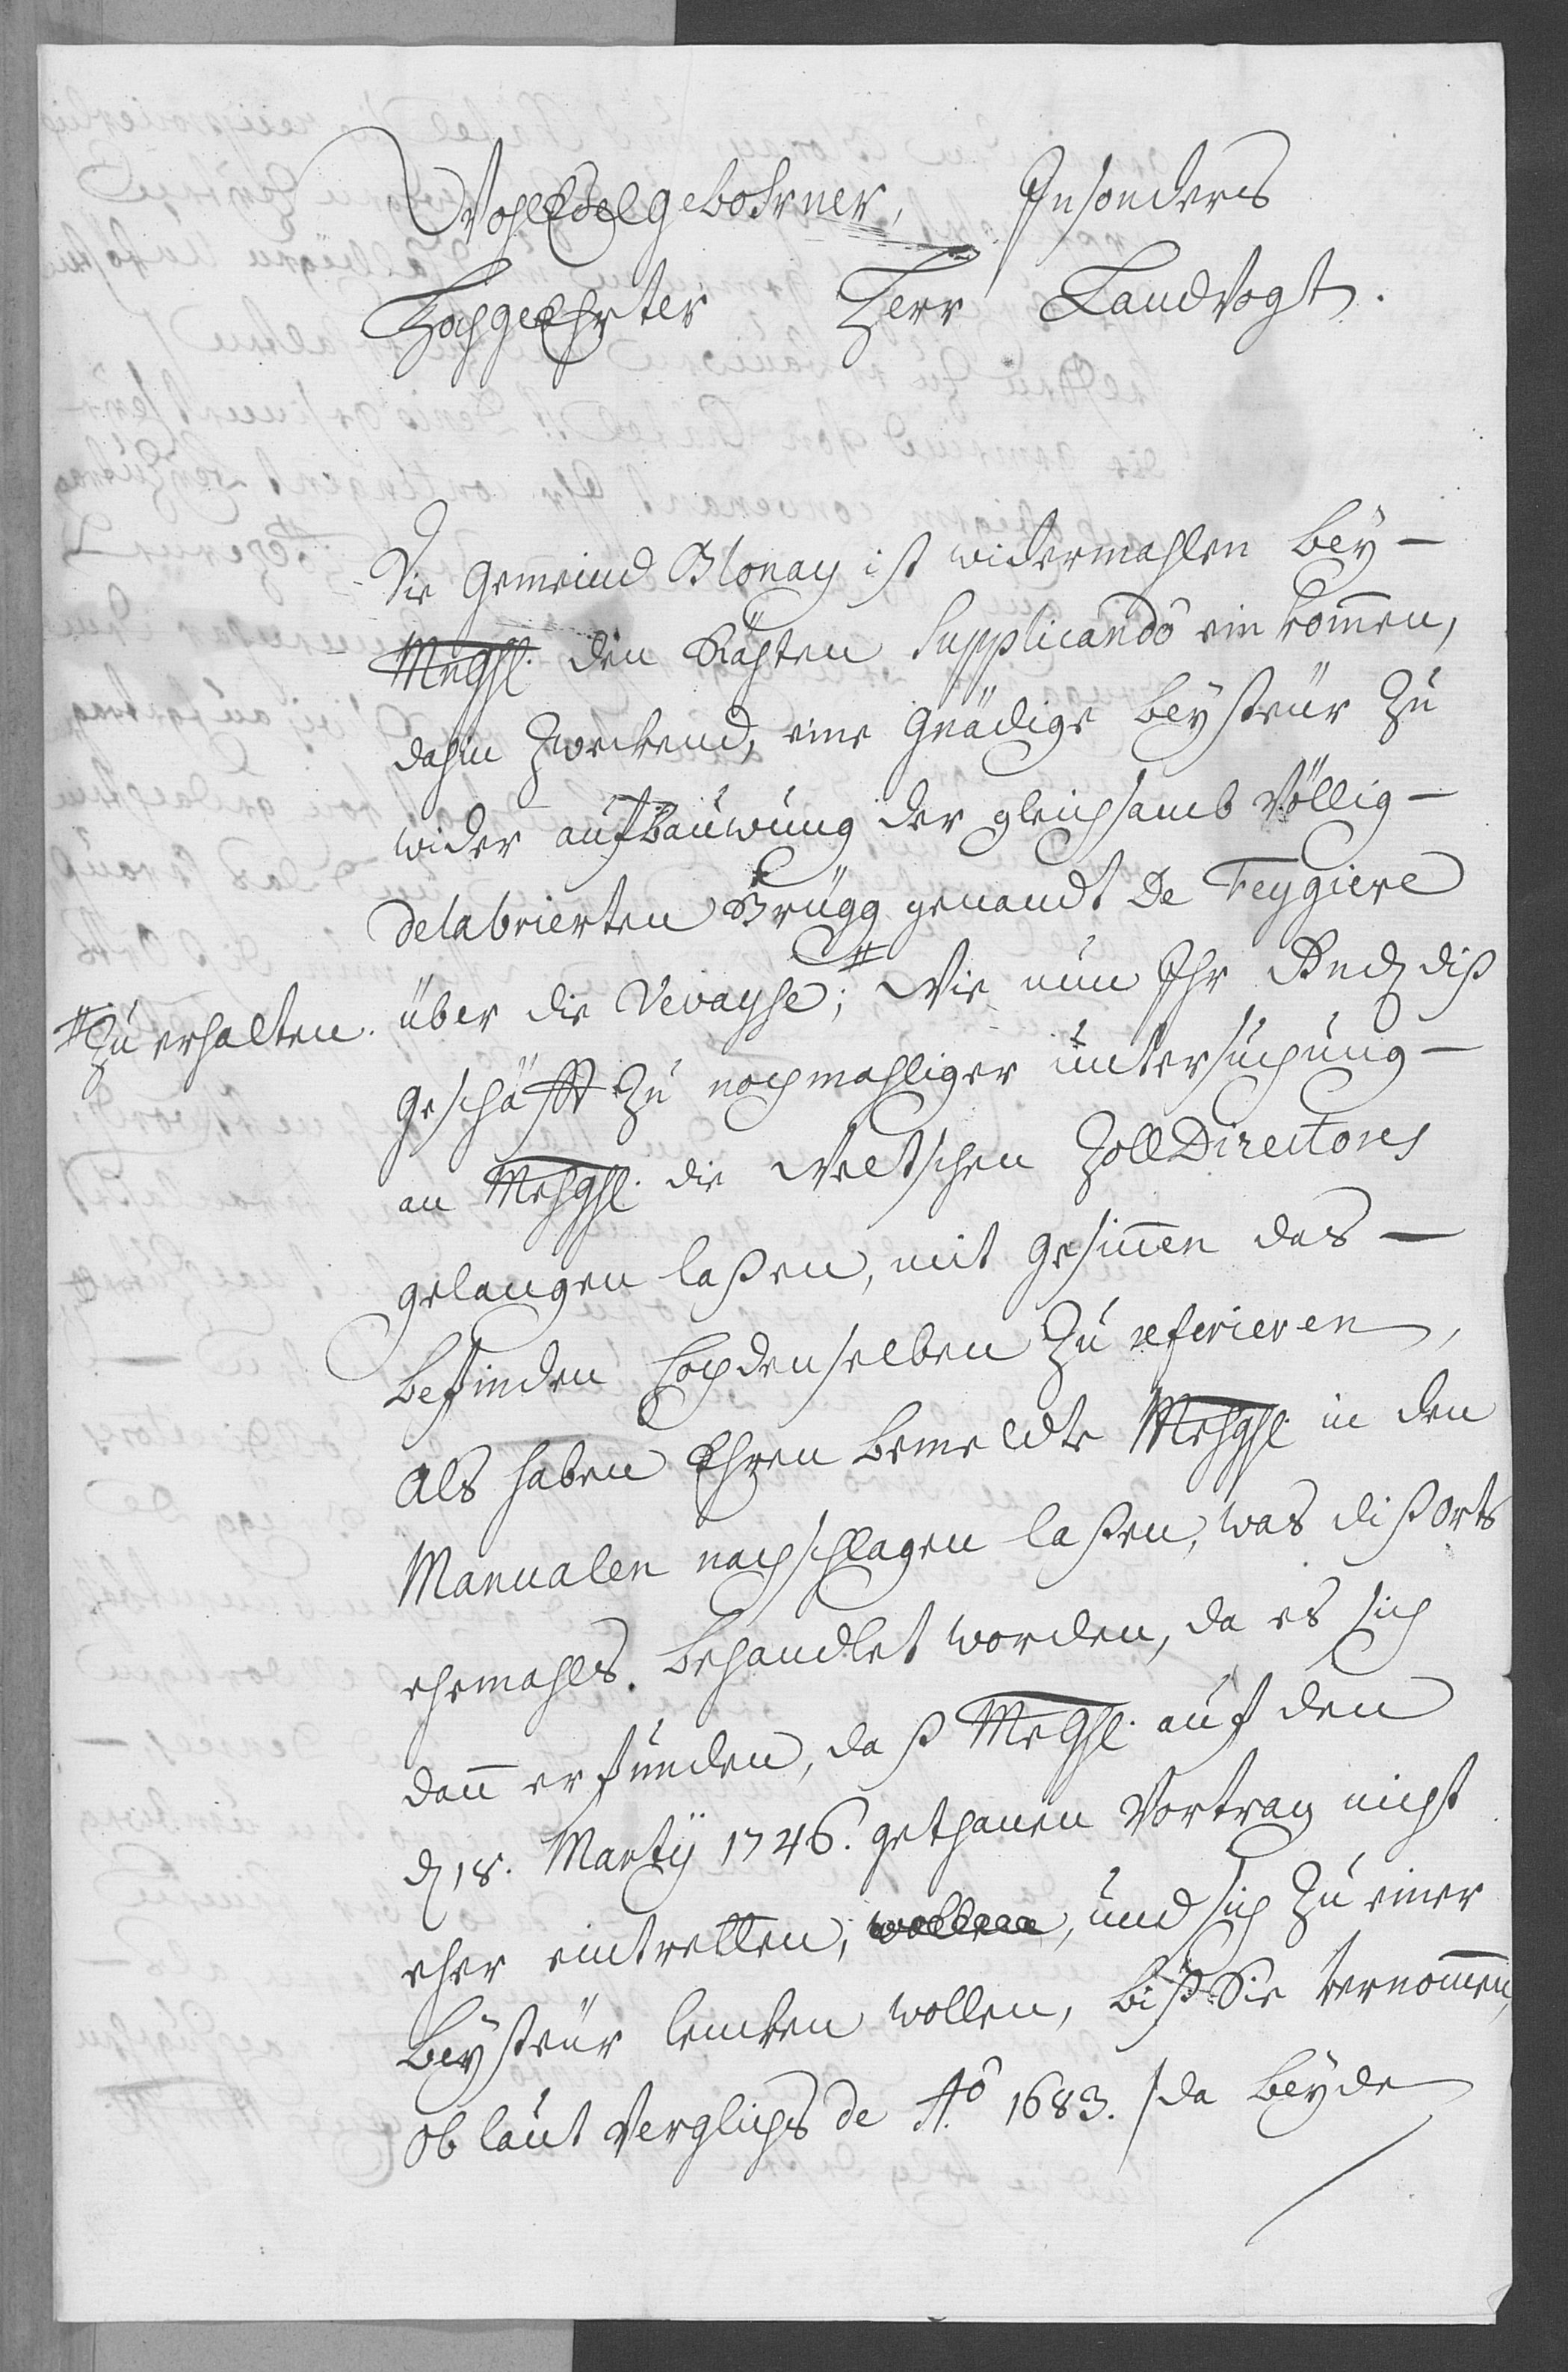 WohlEdelgebohrner, Insonders
HochgeEhrter Herr LandVogt.
Die Gemeind Blonay ist widermahlen bey-
MnGhl. den Rähten Supplicando einkommen,
dahin Zweckend, eine Gnädige beysteür Zu
wider aufbauwung der gleichsamb Völlig-
delabrierten Brügg genandt De Feygiere
über die Vevayse; # Wie nun Ihr Gnd. diß
# Zu erhalten.
geschäfft Zu nochmahliger untersuchung-
an Mehghl. die Weltschen Zoll Directores
gelangen laßen, mit gesinnen das-
befinden hochdenselben Zu referieren,
Als haben Ehren bemeldte Mehghl. in den
Manualen nachschlagen laßen, was dißorts
ehemahls. behandlet worden, da es sich
dann erfunden, daß MeGhl. auf den
d. 18. Martÿ 1746. gethanen Vortrag nicht
eher eintretten, wollen, und sich Zu einer
beysteür lencken wollen, biß Sie vernommen,
ob laut Verglichs de A.o 1683. /da beyde